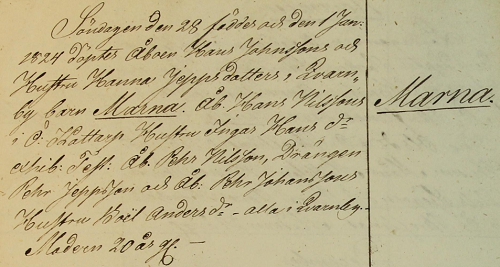 Söndagen den 28 föddes och den 1 Jan:
1824 döptes Åboen Hans Johnssons och
Hustru Hanna Jeppsdotters i Qvarn-
by barn Marna. Åb. Hans Nilssons
i Ö: Kattarp Hustru Ingar Hans dr
Test. Åb. Pehr Nilsson, Drängen
Pehr Jeppsson och Åb: Pehr Johanssons
Hustru Boel Anders dr - alla i Qvarnby.
Modern 20 år gl. -
Marna.